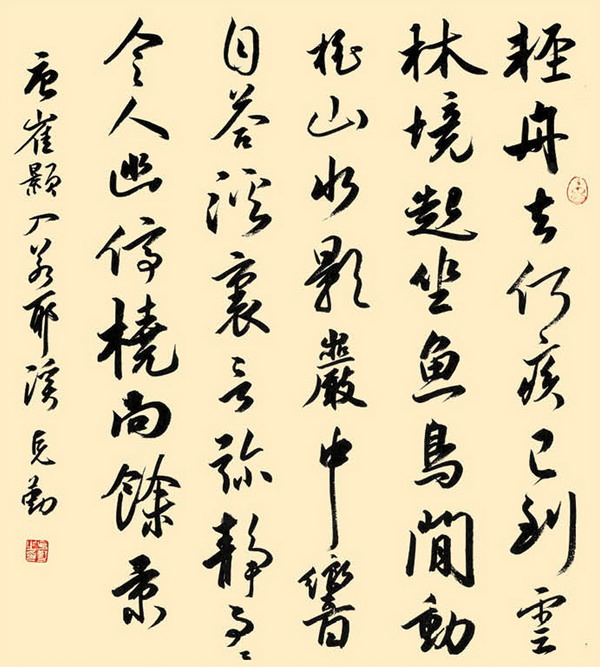 輕舟去何疾已到雲
林境起坐魚鳥間動
搖山水影巖中響
自答溪裏言弥静事〻
令人幽停橈向餘景
唐崔顥入若耶溪 克勤